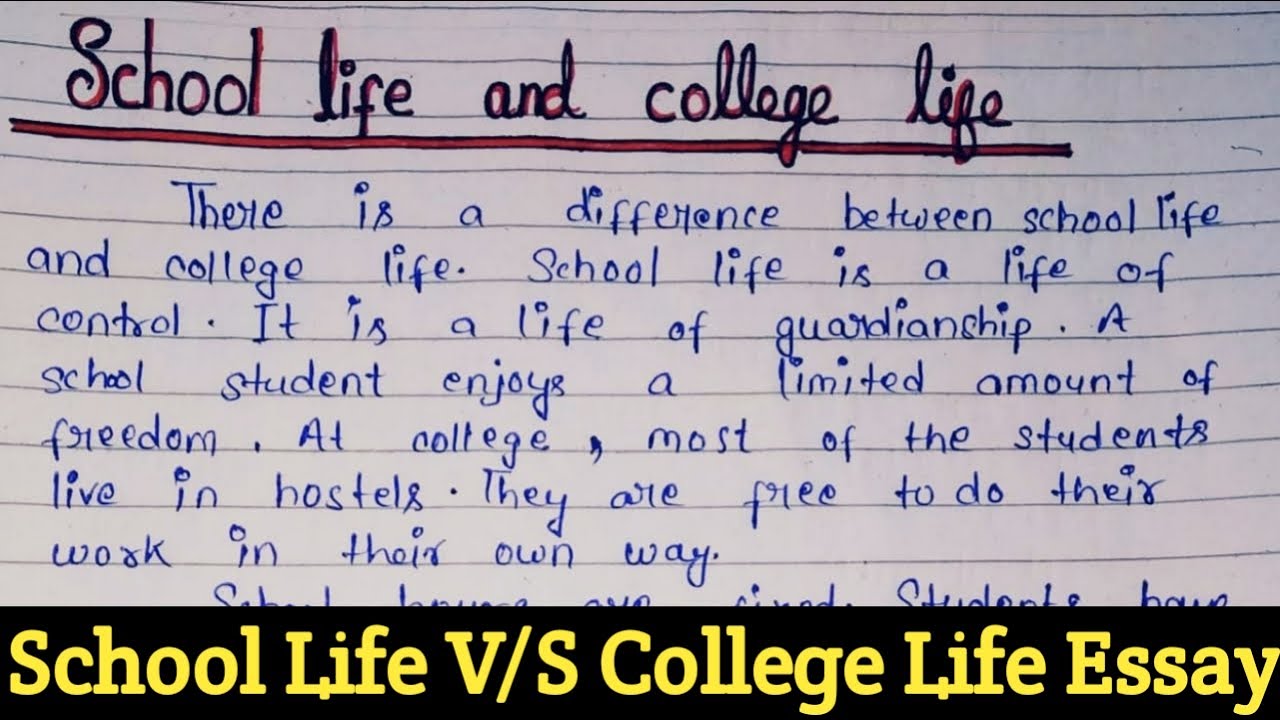 School life and college life
There is a difference between school life
and college life. School life is a life of
control. It is a life of guardianship. A
school student enjoys a limited amount of
freedom. At college, most of the students
live in hostels. They are free to do their
work in their own way.
School hours are fixed. Students have
School Life V/S College Life Essay